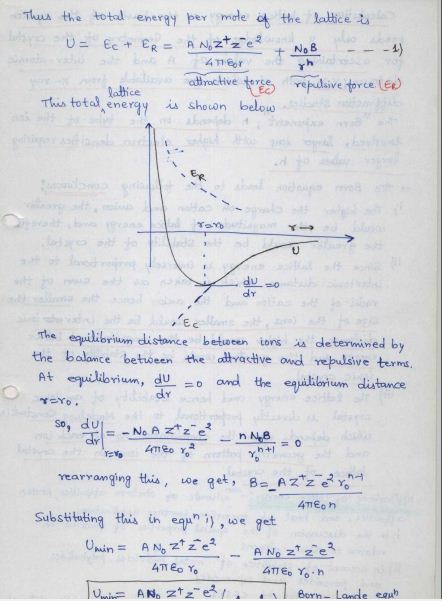 Thus the total energy per mole of the lattice is
U = Ec + ER = A N₀Z⁺Z⁻e² / 4πε₀r + N₀B / rⁿ - - - - 1)
attractive force (Ec) repulsive force (ER)
This total lattice energy is shown below
ER
r=r₀ r→
U
dU/dr = 0
Ec
The equilibrium distance between ions is determined by
the balance between the attractive and repulsive terms.
At equilibrium, dU/dr = 0 and the equilibrium distance
r=r₀.
So, dU/dr |r=r₀ = -N₀ A Z⁺Z⁻e² / 4πε₀ r₀² - n N₀B / r₀ⁿ⁺¹ = 0
rearranging this, we get, B = -A Z⁺Z⁻e² r₀ⁿ⁻¹ / 4πε₀ n
Substituting this in equⁿ i), we get
Umin = A N₀ Z⁺Z⁻e² / 4πε₀ r₀ - A N₀ Z⁺Z⁻e² / 4πε₀ r₀·n
Umin = A N₀ Z⁺Z⁻e² Born-Lande equⁿ